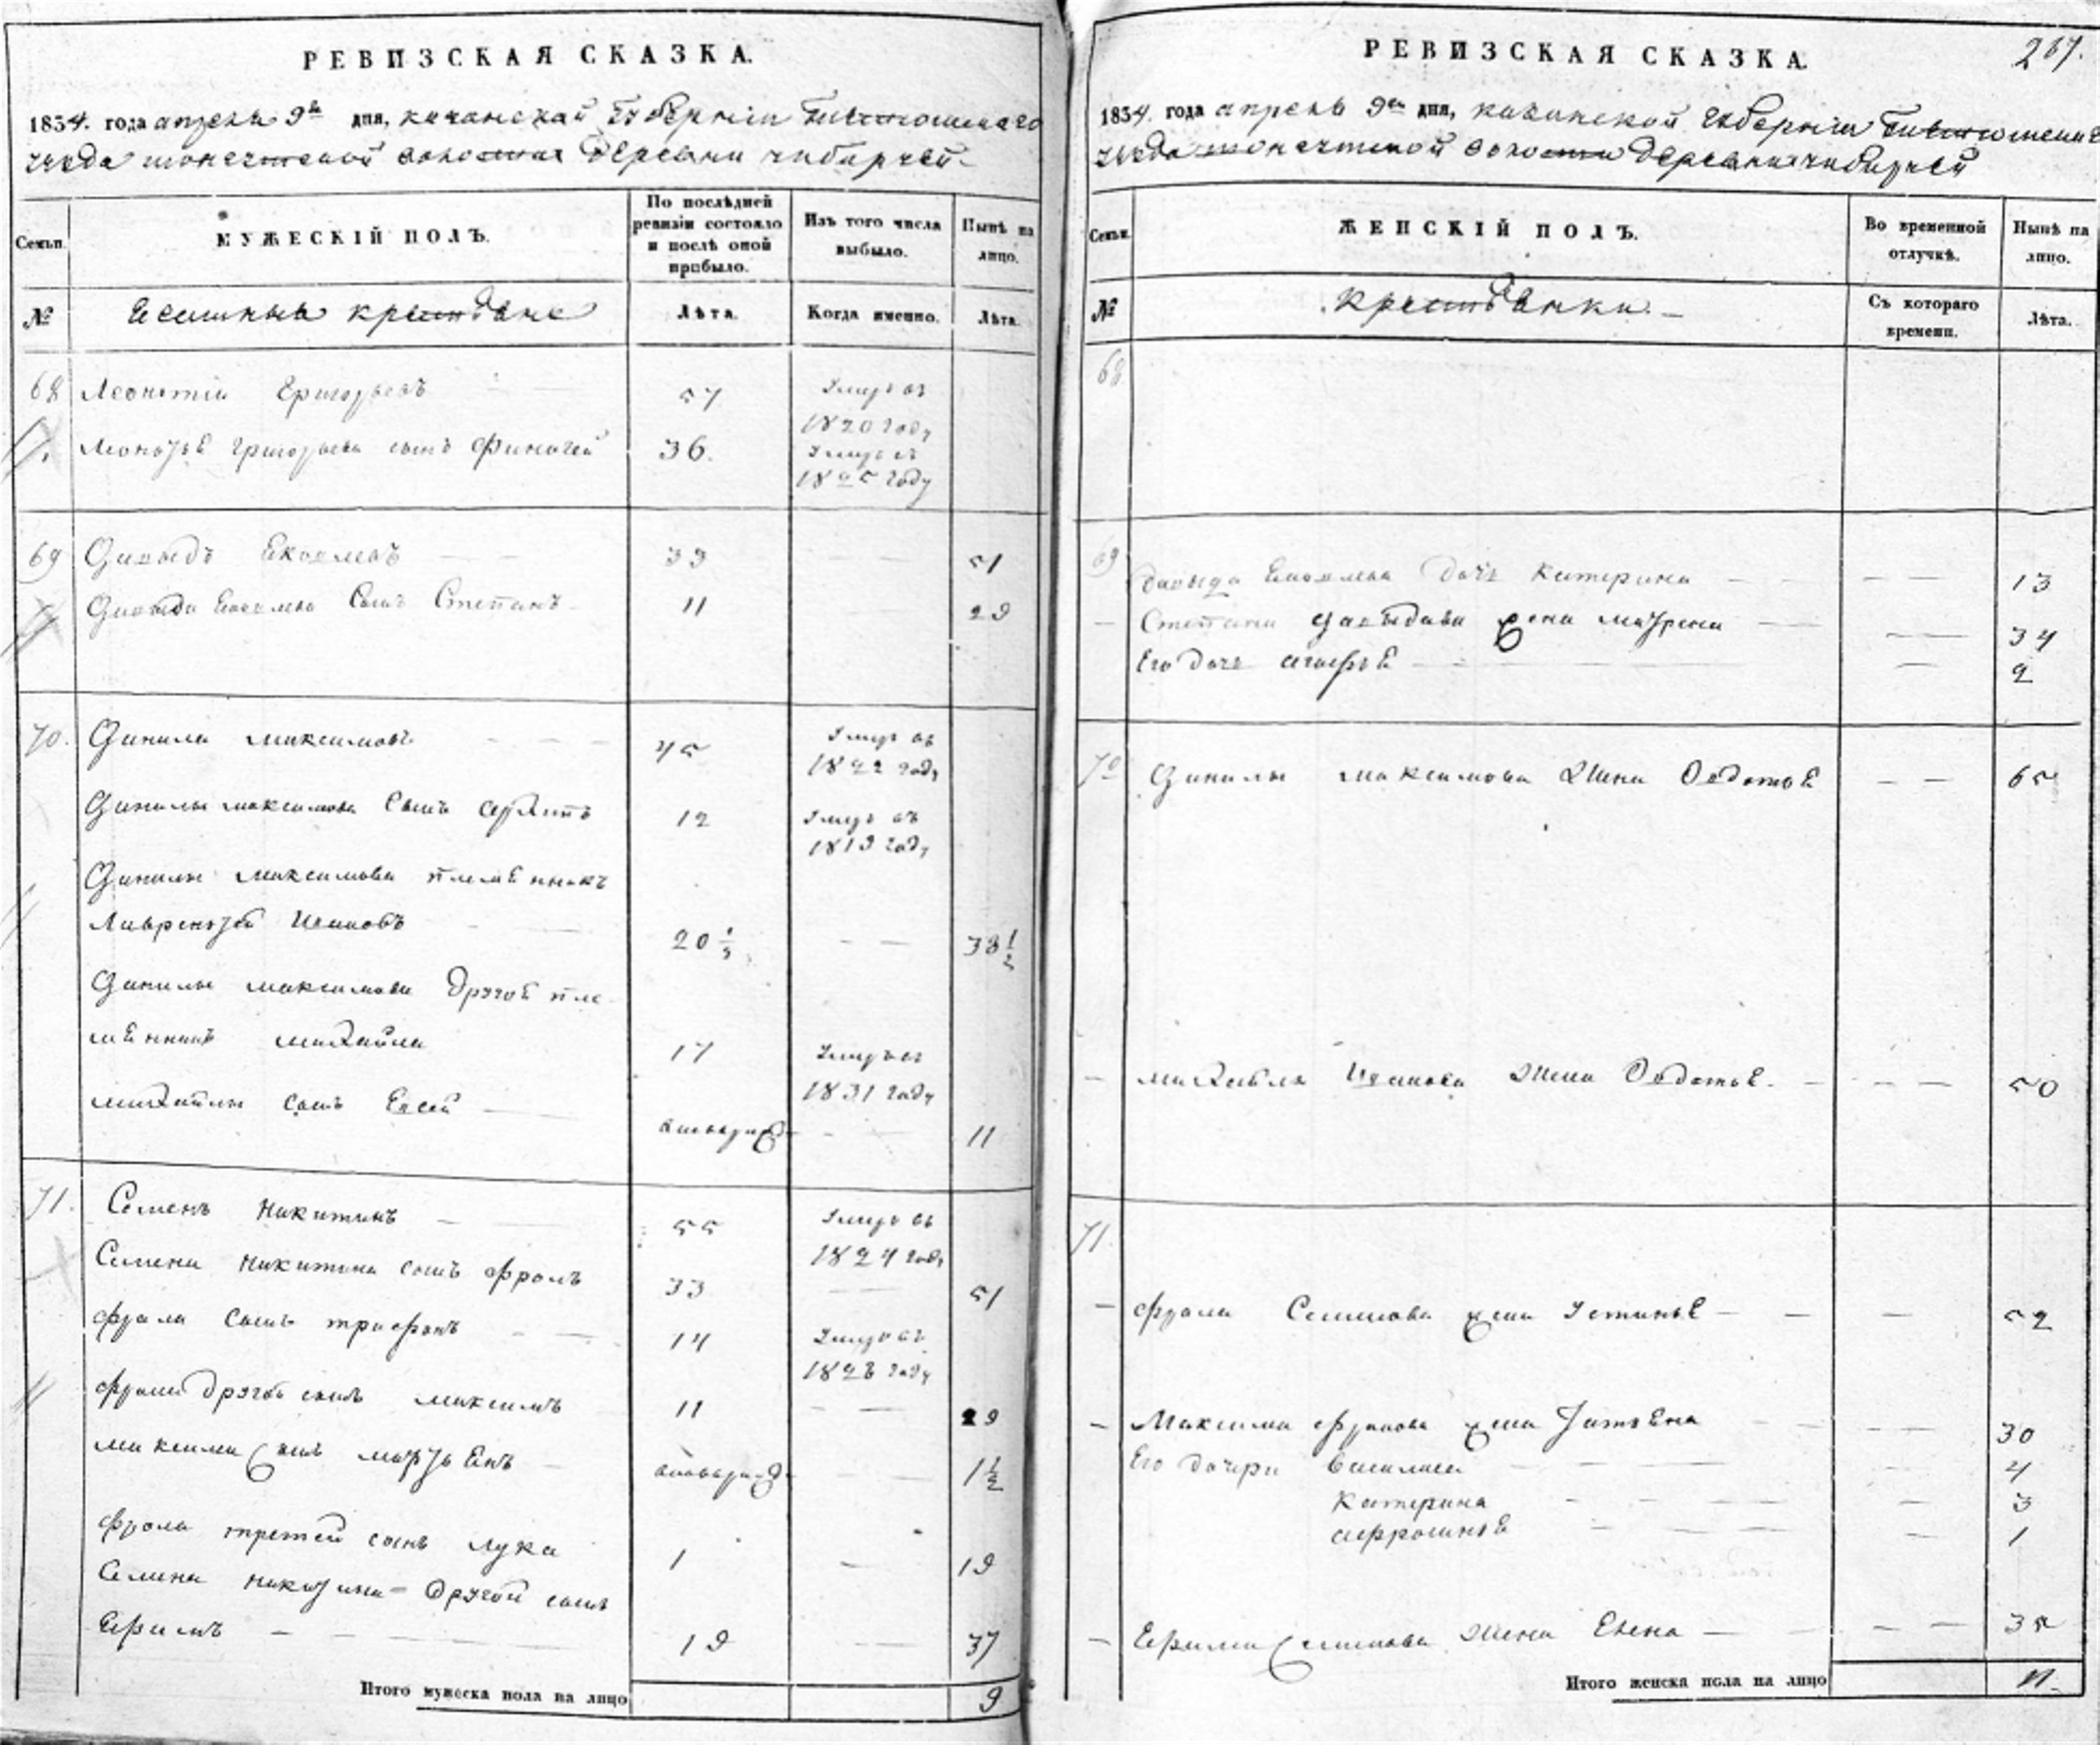 РЕВИЗСКАЯ СКАЗКА.
1834. года апреля 9го дня, казанской Губернии
уезда волости Деревни чибирчей
Семьи.
МУЖЕСКІЙ ПОЛЪ.
По послѣдней ревизіи состояло и послѣ оной прибыло.
Изъ того числа выбыло.
Нынѣ на лицо.
№
крестьяне
Лѣта.
Когда именно.
Лѣта.
68 Леонтіи Григорьевъ 57 Умеръ въ 1820 году
Григорьева сынъ Финогей 36. Умеръ въ 1825 году
69 Давыдъ 33 — 51
Давыда Сынъ Степанъ 11 29
70. Данила максимовъ 45 Умеръ въ 1822 году
Данилы максимова Сынъ 12 Умеръ въ 1819 году
Данилы максимова племенникъ
Лаврентей Ивановъ 20 — — 38 1/2
Данилы максимова Другой пле
менникъ михайла 17 Умеръ въ 1831 году
михайлы сынъ Евсей — — 11
71. Семенъ Никитинъ — 55 Умеръ въ 1824 году
Семена никитина сынъ фролъ 33 — 51
фрола сынъ трифонъ 14 Умеръ въ 1826 году
фрола другой сынъ максимъ 11 — — 29
максима Сынъ — — 1 1/2
фрола третей сынъ лука 1 — 19
Семена никитина Другой сынъ
Ефимъ — 19 — 37
Итого мужеска пола на лицо 9
РЕВИЗСКАЯ СКАЗКА.
267.
1834. года апреля 9го дня, казанской Губерніи
уезда волости Деревни чибирчей
Семьи.
ЖЕНСКІЙ ПОЛЪ.
Во временной отлучкѣ.
Нынѣ на лицо.
№
крестьянки. —
Съ котораго времени.
Лѣта.
68
69 Давыда дочь катерина — — 13
— Степана Давыдова жена матрена — — 34
Его дочь агафьѣ — — 2
70 Данилы максимова жена Овдотьѣ — — 65
— михайла Иванова жена Овдотьѣ. — — 50
71.
— фрола Семенова жена Устиньѣ — — 52
— Максима фролова жена Татьѣна — — 30
Его дочери василиса — — 4
катерина — — 3
афросиньѣ — — 1
— Ефима Семенова жена Елена — — 35
Итого женска пола на лицо 11.